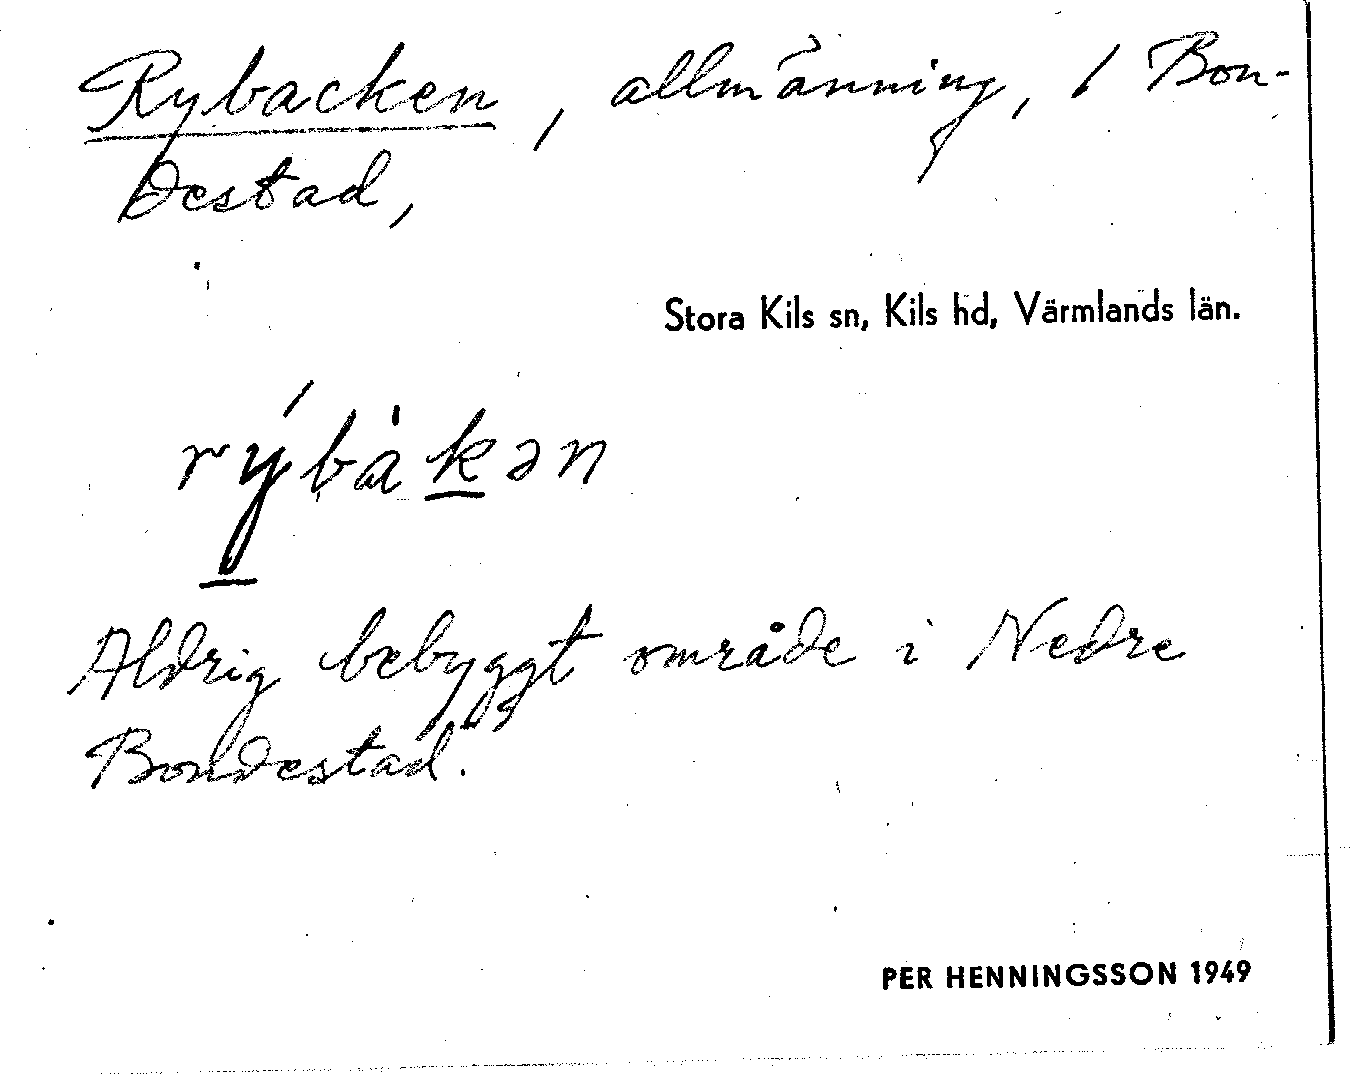 Rybacken, allmänning, i Bon-
destad,
Stora Kils sn, Kils hd, Värmlands län.
rýbàkən
Aldrig bebyggt område i Nedre
Bondestad.
PER HENNINGSSON 1949